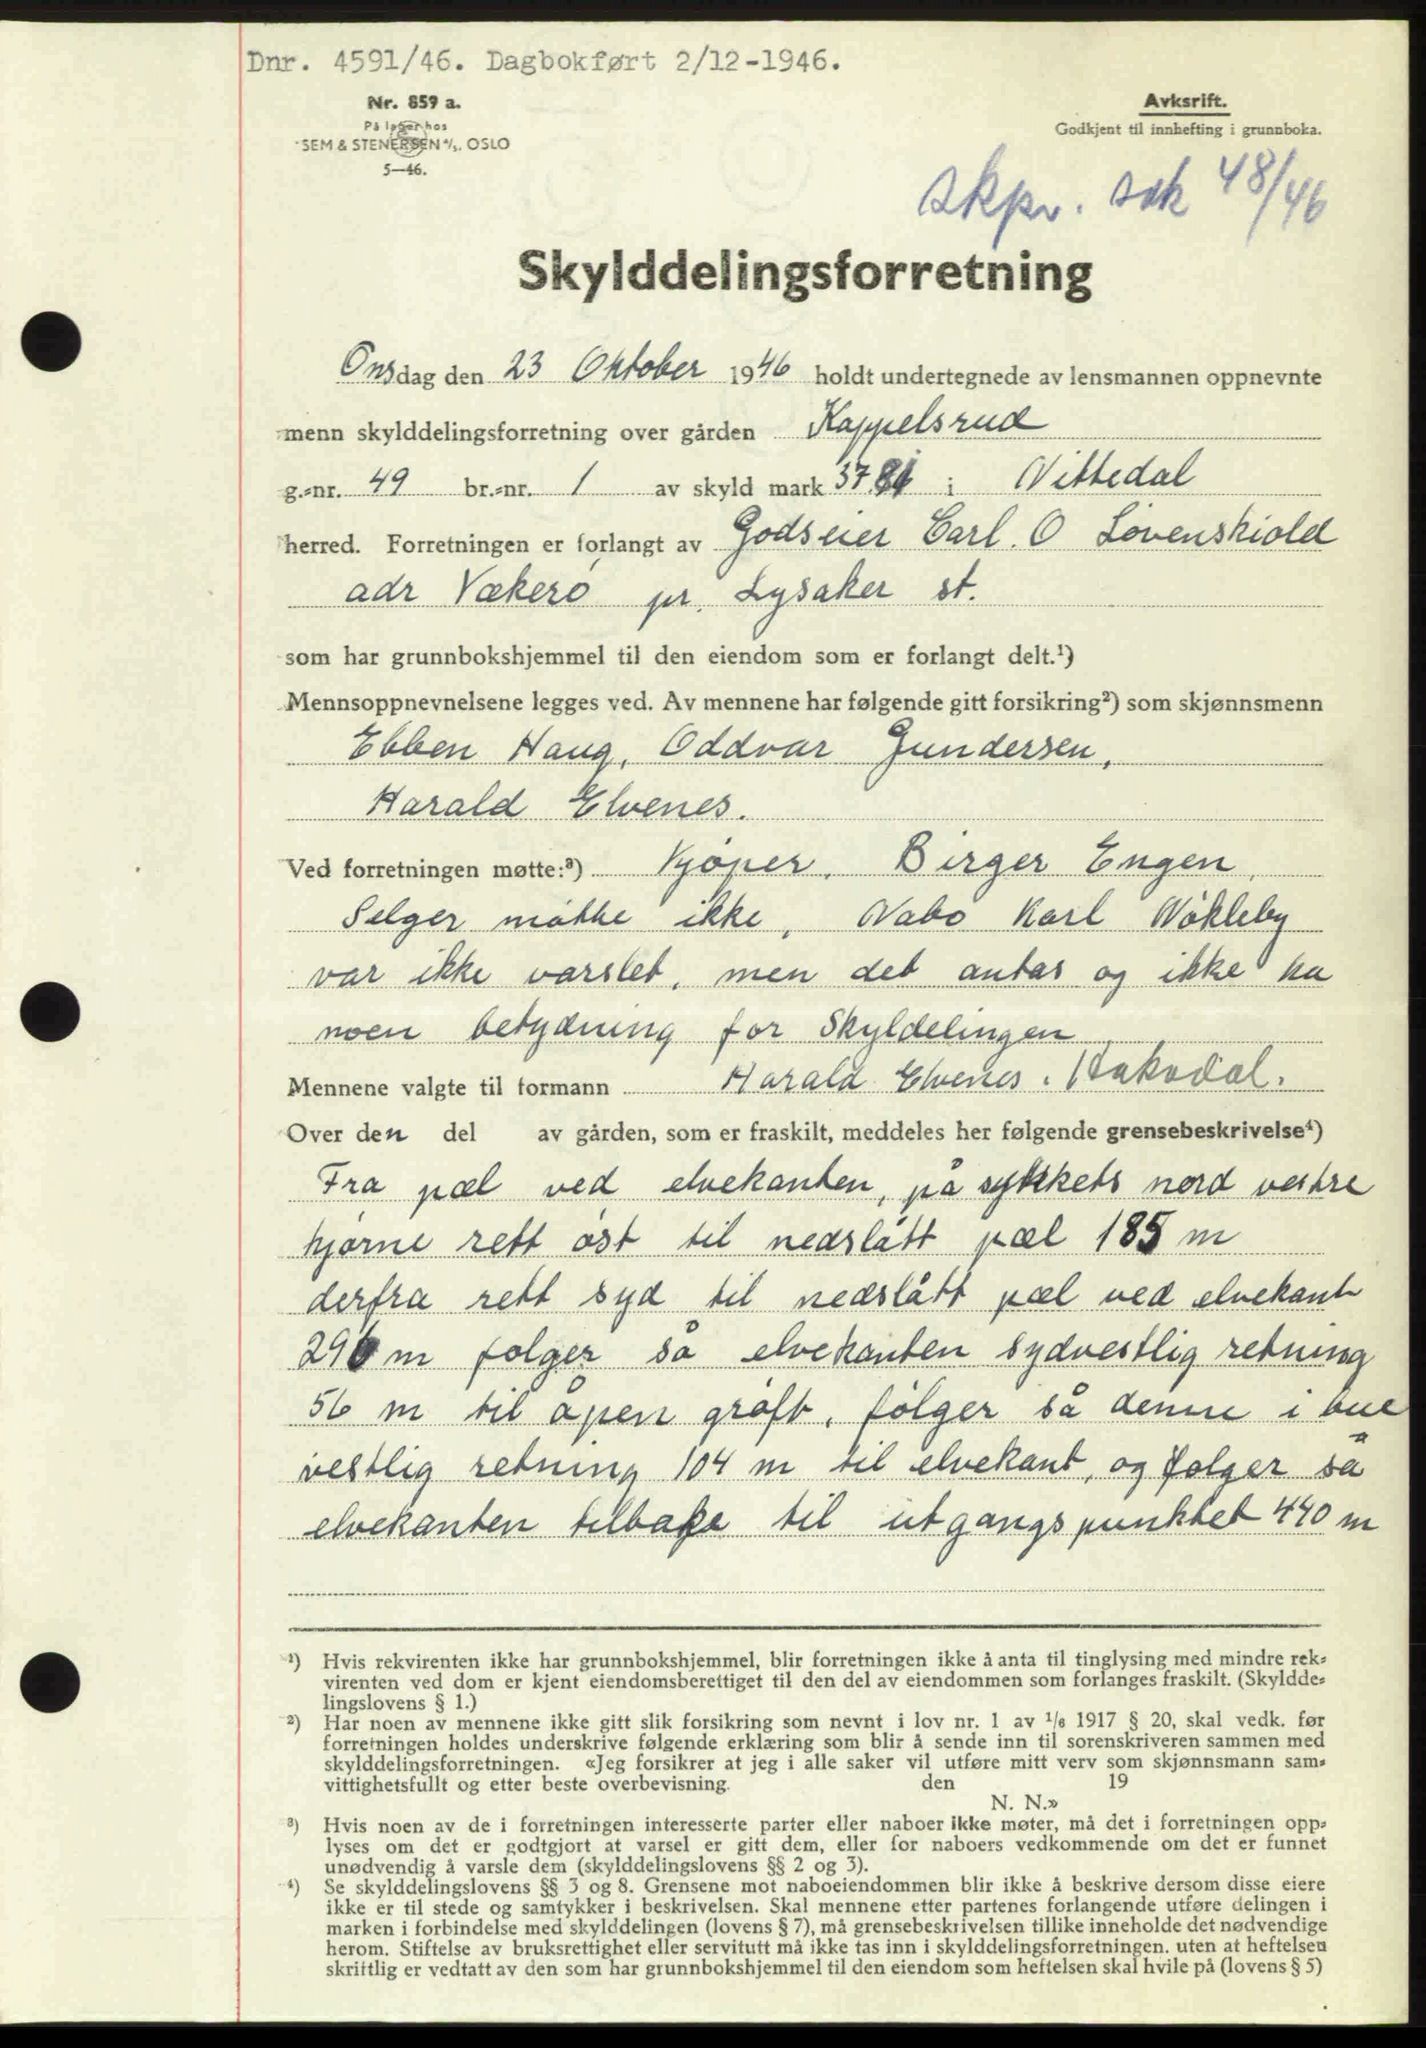 Dnr. 4591/46. Dagbokført 2/12-1946.
Nr. 859 a.
På lager hos
SEM & STENERSEN A/S, OSLO
5—46.
Avksrift.
Godkjent til innhefting i grunnboka.
skpv. sak 48/46
Skylddelingsforretning
Onsdag den 23 Oktober 1946 holdt undertegnede av lensmannen oppnevnte
menn skylddelingsforretning over gården Kappelsrud
g.=nr. 49 br.=nr. 1 av skyld mark 37.81 i Nittedal
herred. Forretningen er forlangt av Godseier Carl. O Løvenskiold
adr Vækerø pr. Lysaker st.
som har grunnbokshjemmel til den eiendom som er forlangt delt.¹)
Mennsoppnevnelsene legges ved. Av mennene har følgende gitt forsikring²) som skjønnsmenn
Ebben Haug, Oddvar Gundersen,
Harald Elvenes.
Ved forretningen møtte:³) Kjøper, Birger Engen,
Selger møtte ikke, Nabo Karl Nøkleby
var ikke varslet, men det antas og ikke ha
noen betydning for Skyldelingen
Mennene valgte til formann Harald Elvenes. Hakadal.
Over den del av gården, som er fraskilt, meddeles her følgende grensebeskrivelse⁴)
Fra pæl ved elvekanten, på stykkets nord vestre
hjørne rett øst til nedslått pæl 185 m
derfra rett syd til nedslått pæl ved elvekant
296 m følger så elvekanten sydvestlig retning
56 m til åpen grøft, følger så denne i bue
vestlig retning 104 m til elvekant, og følger så
elvekanten tilbake til utgangspunktet 440 m
¹) Hvis rekvirenten ikke har grunnbokshjemmel, blir forretningen ikke å anta til tinglysing med mindre rek=
virenten ved dom er kjent eiendomsberettiget til den del av eiendommen som forlanges fraskilt. (Skyldde=
lingslovens § 1.)
²) Har noen av mennene ikke gitt slik forsikring som nevnt i lov nr. 1 av ¹/₆ 1917 § 20, skal vedk. før
forretningen holdes underskrive følgende erklæring som blir å sende inn til sorenskriveren sammen med
skylddelingsforretningen. «Jeg forsikrer at jeg i alle saker vil utføre mitt verv som skjønnsmann sam=
vittighetsfullt og etter beste overbevisning. den 19
N. N.»
³) Hvis noen av de i forretningen interesserte parter eller naboer ikke møter, må det i forretningen opp=
lyses om det er godtgjort at varsel er gitt dem, eller for naboers vedkommende om det er funnet
unødvendig å varsle dem (skylddelingslovens §§ 2 og 3).
⁴) Se skylddelingslovens §§ 3 og 8. Grensene mot naboeiendommen blir ikke å beskrive dersom disse eiere
ikke er til stede og samtykker i beskrivelsen. Skal mennene etter partenes forlangende utføre delingen i
marken i forbindelse med skylddelingen (lovens § 7), må grensebeskrivelsen tillike inneholde det nødvendige
herom. Stiftelse av bruksrettighet eller servitutt må ikke tas inn i skylddelingsforretningen. uten at heftelsen
skriftlig er vedtatt av den som har grunnbokshjemmel til den eiendom som heftelsen skal hvile på (lovens § 5)